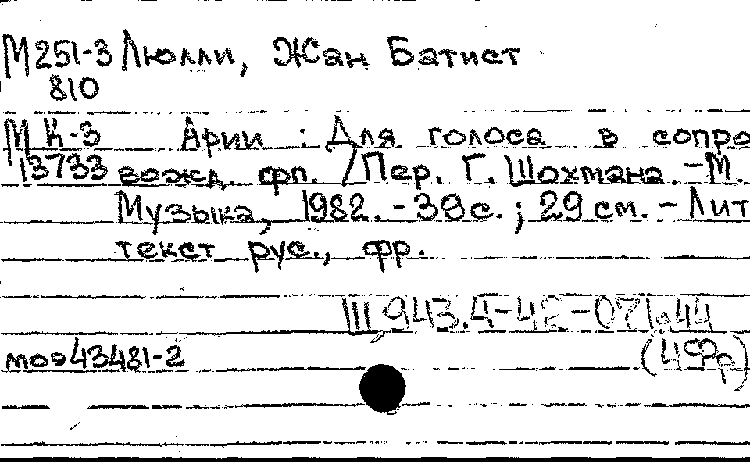 М 251-3 Люлли, Жан Батист
810
М К-3 Арии : Для голоса в сопро
13733 вожд. фп. / Пер. Г. Шохмана. - М.
Музыка, 1982. - 38 с. ; 29 см. - Лит
текст рус., фр.
III 943.4-42-071.44
моо43481-2 (4Фр)